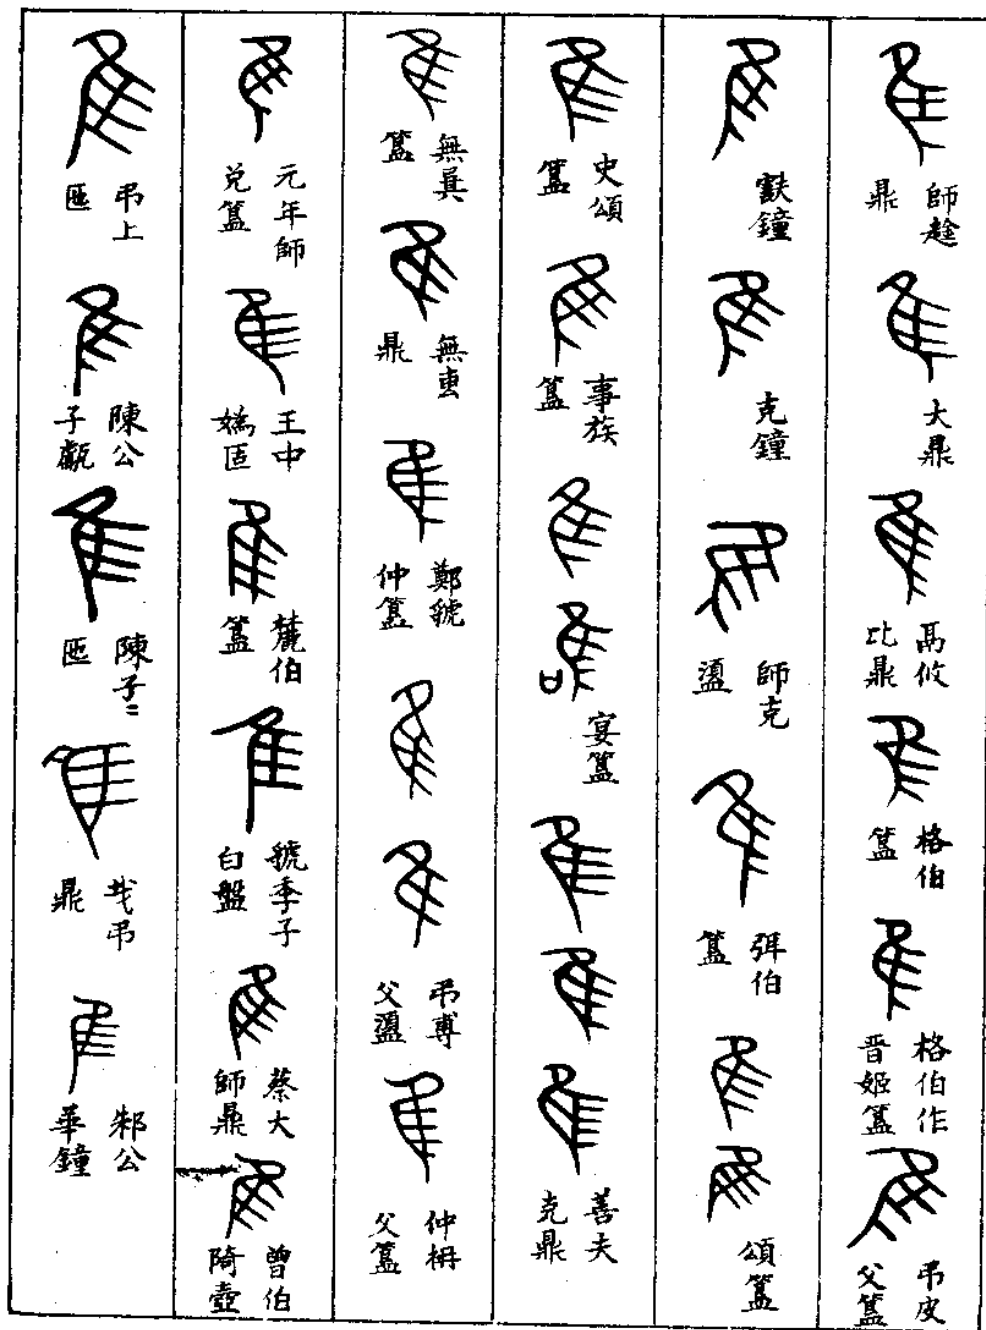 師趛
鼎
大鼎
鬲攸
比鼎
格伯
簋
格伯作
晉姬簋
弔皮
父簋
㝬鐘
克鐘
師克
盨
弭伯
簋
頌簋
史頌
簋
事族
簋
宴簋
善夫
克鼎
無㠱
簋
無叀
鼎
鄭虢
仲簋
弔尃
父盨
仲枏
父簋
元年師
兌簋
王中
媯匜
麓伯
簋
虢季子
白盤
蔡大
師鼎
曾伯
陭壺
弔上
匜
陳公
子甗
陳子=
匜
弔
鼎
邾公
華鐘